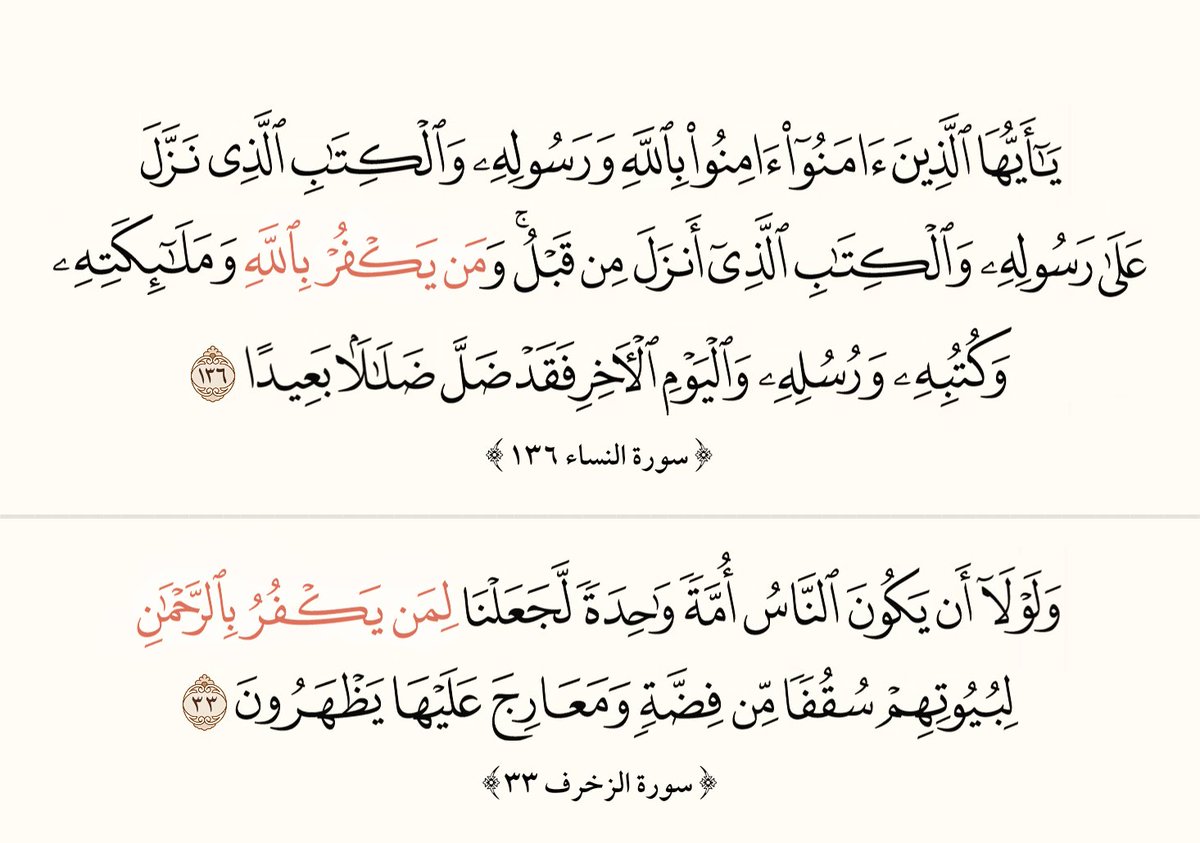 يَـٰٓأَيُّهَا ٱلَّذِينَ ءَامَنُوٓا۟ ءَامِنُوا۟ بِٱللَّهِ وَرَسُولِهِۦ وَٱلْكِتَـٰبِ ٱلَّذِى نَزَّلَ
عَلَىٰ رَسُولِهِۦ وَٱلْكِتَـٰبِ ٱلَّذِىٓ أَنزَلَ مِن قَبْلُ ۚ وَمَن يَكْفُرْ بِٱللَّهِ وَمَلَـٰٓئِكَتِهِۦ
وَكُتُبِهِۦ وَرُسُلِهِۦ وَٱلْيَوْمِ ٱلْـَٔاخِرِ فَقَدْ ضَلَّ ضَلَـٰلًۢا بَعِيدًا ١٣٦
﴿ سورة النساء ١٣٦ ﴾
وَلَوْلَآ أَن يَكُونَ ٱلنَّاسُ أُمَّةً وَٰحِدَةً لَّجَعَلْنَا لِمَن يَكْفُرُ بِٱلرَّحْمَـٰنِ
لِبُيُوتِهِمْ سُقُفًا مِّن فِضَّةٍ وَمَعَارِجَ عَلَيْهَا يَظْهَرُونَ ٣٣
﴿ سورة الزخرف ٣٣ ﴾